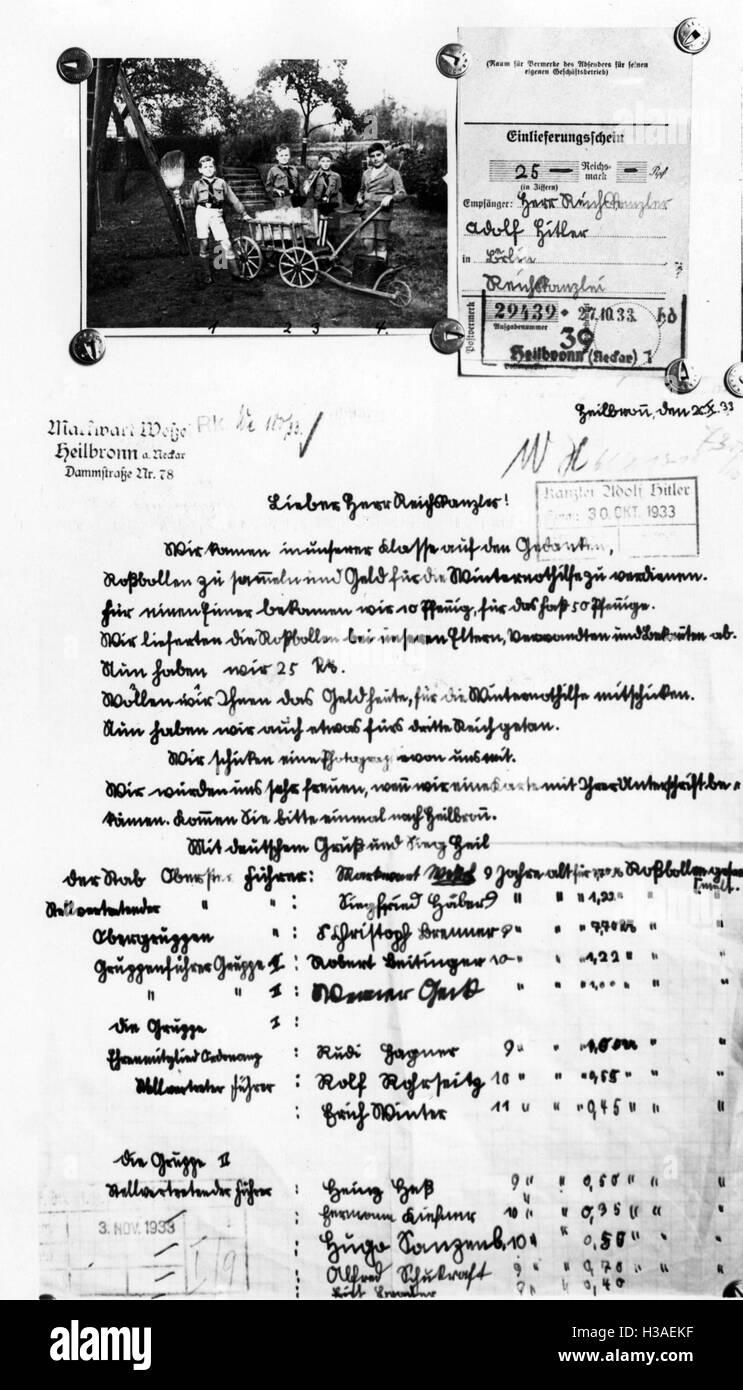 (Raum für Vermerke des Absenders für seinen
eigenen Geschäftsbetrieb)
Einlieferungsschein
25 — Reichsmark — Rpf
(in Ziffern)
Empfänger: Herr Reichskanzler
Adolf Hitler
in Berlin
Reichskanzlei
Postvermerk
29439 27.10.33
Aufgabenummer
39
Heilbronn (Neckar) 1
1 2 3 4.
Heilbron̅, den
Markwart
Heilbronn a. Neckar
Dammstraße Nr. 78
RK.
Kanzlei Adolf Hitler
30. OKT. 1933
Lieber Herr Reichskanzler!
Wir kamen in unserer Klasse auf den Gedanken,
Roßbollen zu sam̅eln und Geld für die Winternothilfe zu verdienen.
Für einen Eimer bekamen wir 10 Pfen̅ig, für das Faß 50 Pfen̅ige.
Wir lieferten die Roßbollen bei unseren Eltern, Verwandten und Bekan̅ten ab.
Nun haben wir 25 RM.
Wollen wir Ihnen das Geld heute, für die Winternothilfe mitschicken.
Nun haben wir auch etwas fürs dritte Reich getan.
Wir schicken eine Photograph von uns mit.
Wir würden uns sehr freuen, wen̅ wir eine Karte mit Ihrer Unterschrift be-
kämen. Kom̅en Sie bitte einmal nach Heilbron̅.
Mit deutschem Gruß und Sieg Heil
der Stab Oberster Führer: Markwart 9 Jahre alt für Roßbollen
Stellvertretender " " : Siegfried Huber 9 " " " 1,22 " "
Obergruppen " : Christoph Brenner 9 " " "
Gruppenführer Gruppe I : Robert Beitinger 10 " " " 1,22 " "
" " II : Werner " " " 1,00 " "
die Gruppe I :
Ehrenmitglied Ordonanz : Rudi Hagner 9 " " "
Stellvertreter Führer : Rolf Rohrseitz 10 " " " 0,55 " "
: Erich Winter 11 " " " 0,45 " "
die Gruppe II
Stellvertretender Führer : Heinz Heß 9 " " 0,50 " "
: Hermann 10 " " 0,35 " "
: Hugo 10 " " 0,50 " "
: Alfred Schukraft 9 " " 0,70 " "
0,40
3. NOV. 1933
alamy
H3AEKF
www.alamy.com